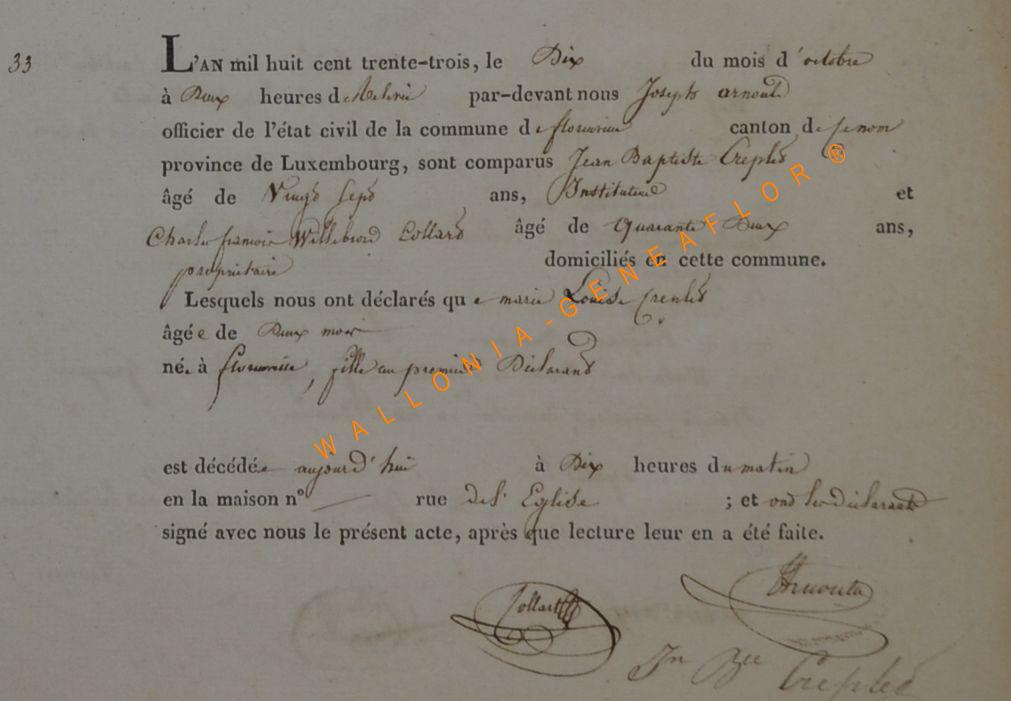 33
L'AN mil huit cent trente-trois, le Dix du mois d'octobre
à Deux heures de Relevée par-devant nous Joseph arnould
officier de l'état civil de la commune de florenville canton de ce nom
province de Luxembourg, sont comparus Jean Baptiste Creplet
âgé de Vingt Sept ans, Instituteur et
Charles françois Willebrord Collard âgé de Quarante Deux ans,
propriétaire domiciliés en cette commune.
Lesquels nous ont déclarés que marie Louise
âgée de Deux mois
née à florenville, fille au premier Déclarant
est décédée aujourd'hui à Dix heures du matin
en la maison n° rue de l'Eglise ; et ont les déclarants
signé avec nous le présent acte, après que lecture leur en a été faite.
Collart
Jn Bte Creplet
WALLONIA-GENEAFLOR ®